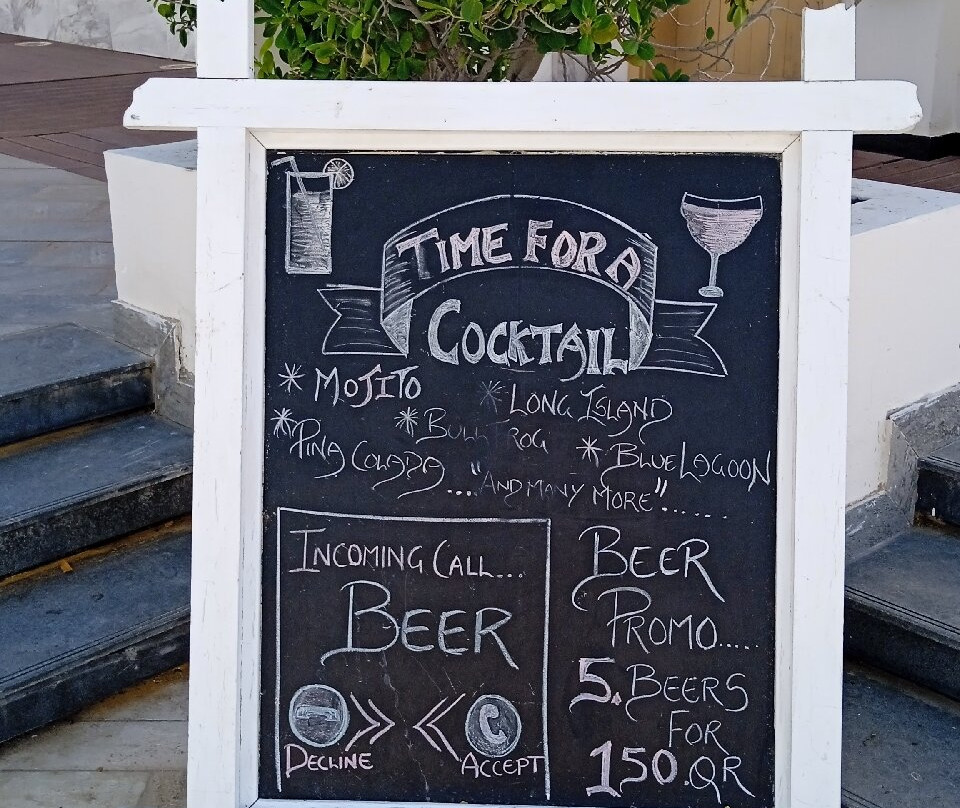 TIME FOR A
COCKTAIL
* MOJITO
* LONG ISLAND
* PINA COLADA
* BULL FROG
* BLUE LAGOON
...."AND MANY MORE"......
INCOMING CALL...
BEER
DECLINE
ACCEPT
BEER
PROMO.....
5. BEERS
FOR
150.QR